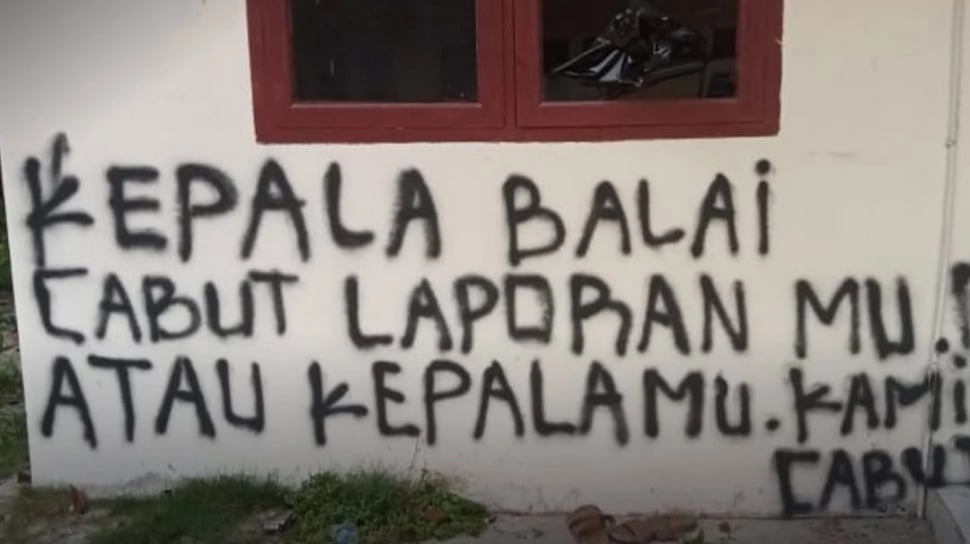 KEPALA BALAi
CABUT LAPORAN MU.
ATAU KEPALAMU. KAMi
CABUT